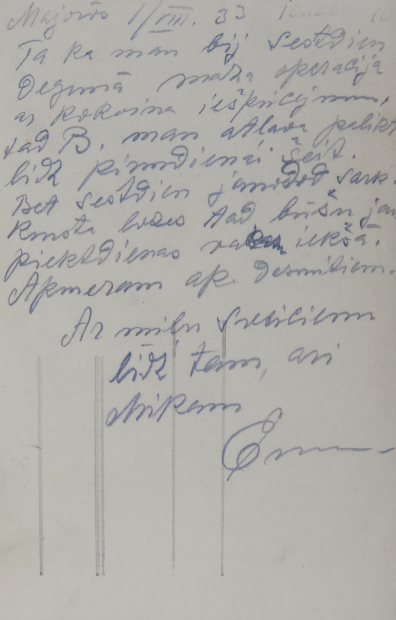 Majorōs 1/VIII. 33
Ta ka man bij sestdien
Degunā maza operācija
ar kokoina iešpricējumu,
tad B. man atļava palikt
līdz pirmdienai šeit.
Bet sestdien jānodod sark.
tad būšu jau
piektdienas iekšā.
Apmeram ap desmitiem.
Ar mīļu sveicienu
līdz tam,